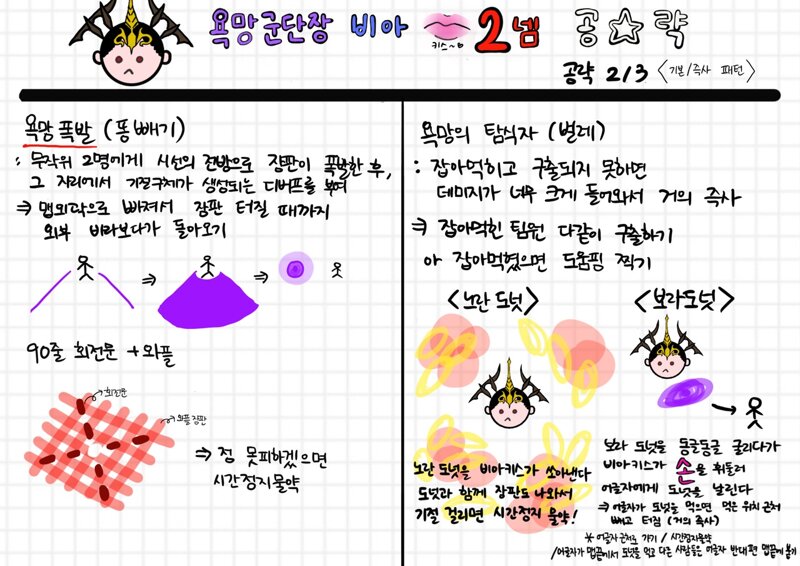 욕망군단장 비아
키스~
2넴 공☆략
공략 2/3 <기본/즉사 패턴>
욕망 폭발 (똥 빼기)
: 무작위 2명에게 시선의 전방으로 장판이 폭발한 후,
그 자리에서 기절구체가 생성되는 디버프를 부여
⇒ 맵외곽으로 빠져서 장판 터질 때까지
외부 바라보다가 돌아오기
⇒ ⇒
90줄 회전문 + 와플
회전문
와플장판
⇒ 점 못피하겠으면
시간정지물약
욕망의 탐식자 (벌레)
: 잡아먹히고 구출되지 못하면
데미지가 너무 크게 들어와서 거의 즉사
⇒ 잡아먹힌 팀원 다같이 구출하기
아 잡아먹혔으면 도움핑 찍기
<노란 도넛>
노란 도넛을 비아키스가 쏘아낸다
도넛과 함께 장판도 나와서
기절 걸리면 시간정지 물약!
<보라도넛>
보라 도넛을 동글동글 굴리다가
비아키스가 손을 휘둘러
어글자에게 도넛을 날린다
⇒ 어글자가 도넛을 먹으면 먹은 위치 근처
빼고 터짐 (거의 즉사)
* 어글자근처로 가기 / 시간정지물약
/어글자가 맵끝에서 도넛을 먹고 다른 사람들은 어글자 반대편 맵끝에 붙기